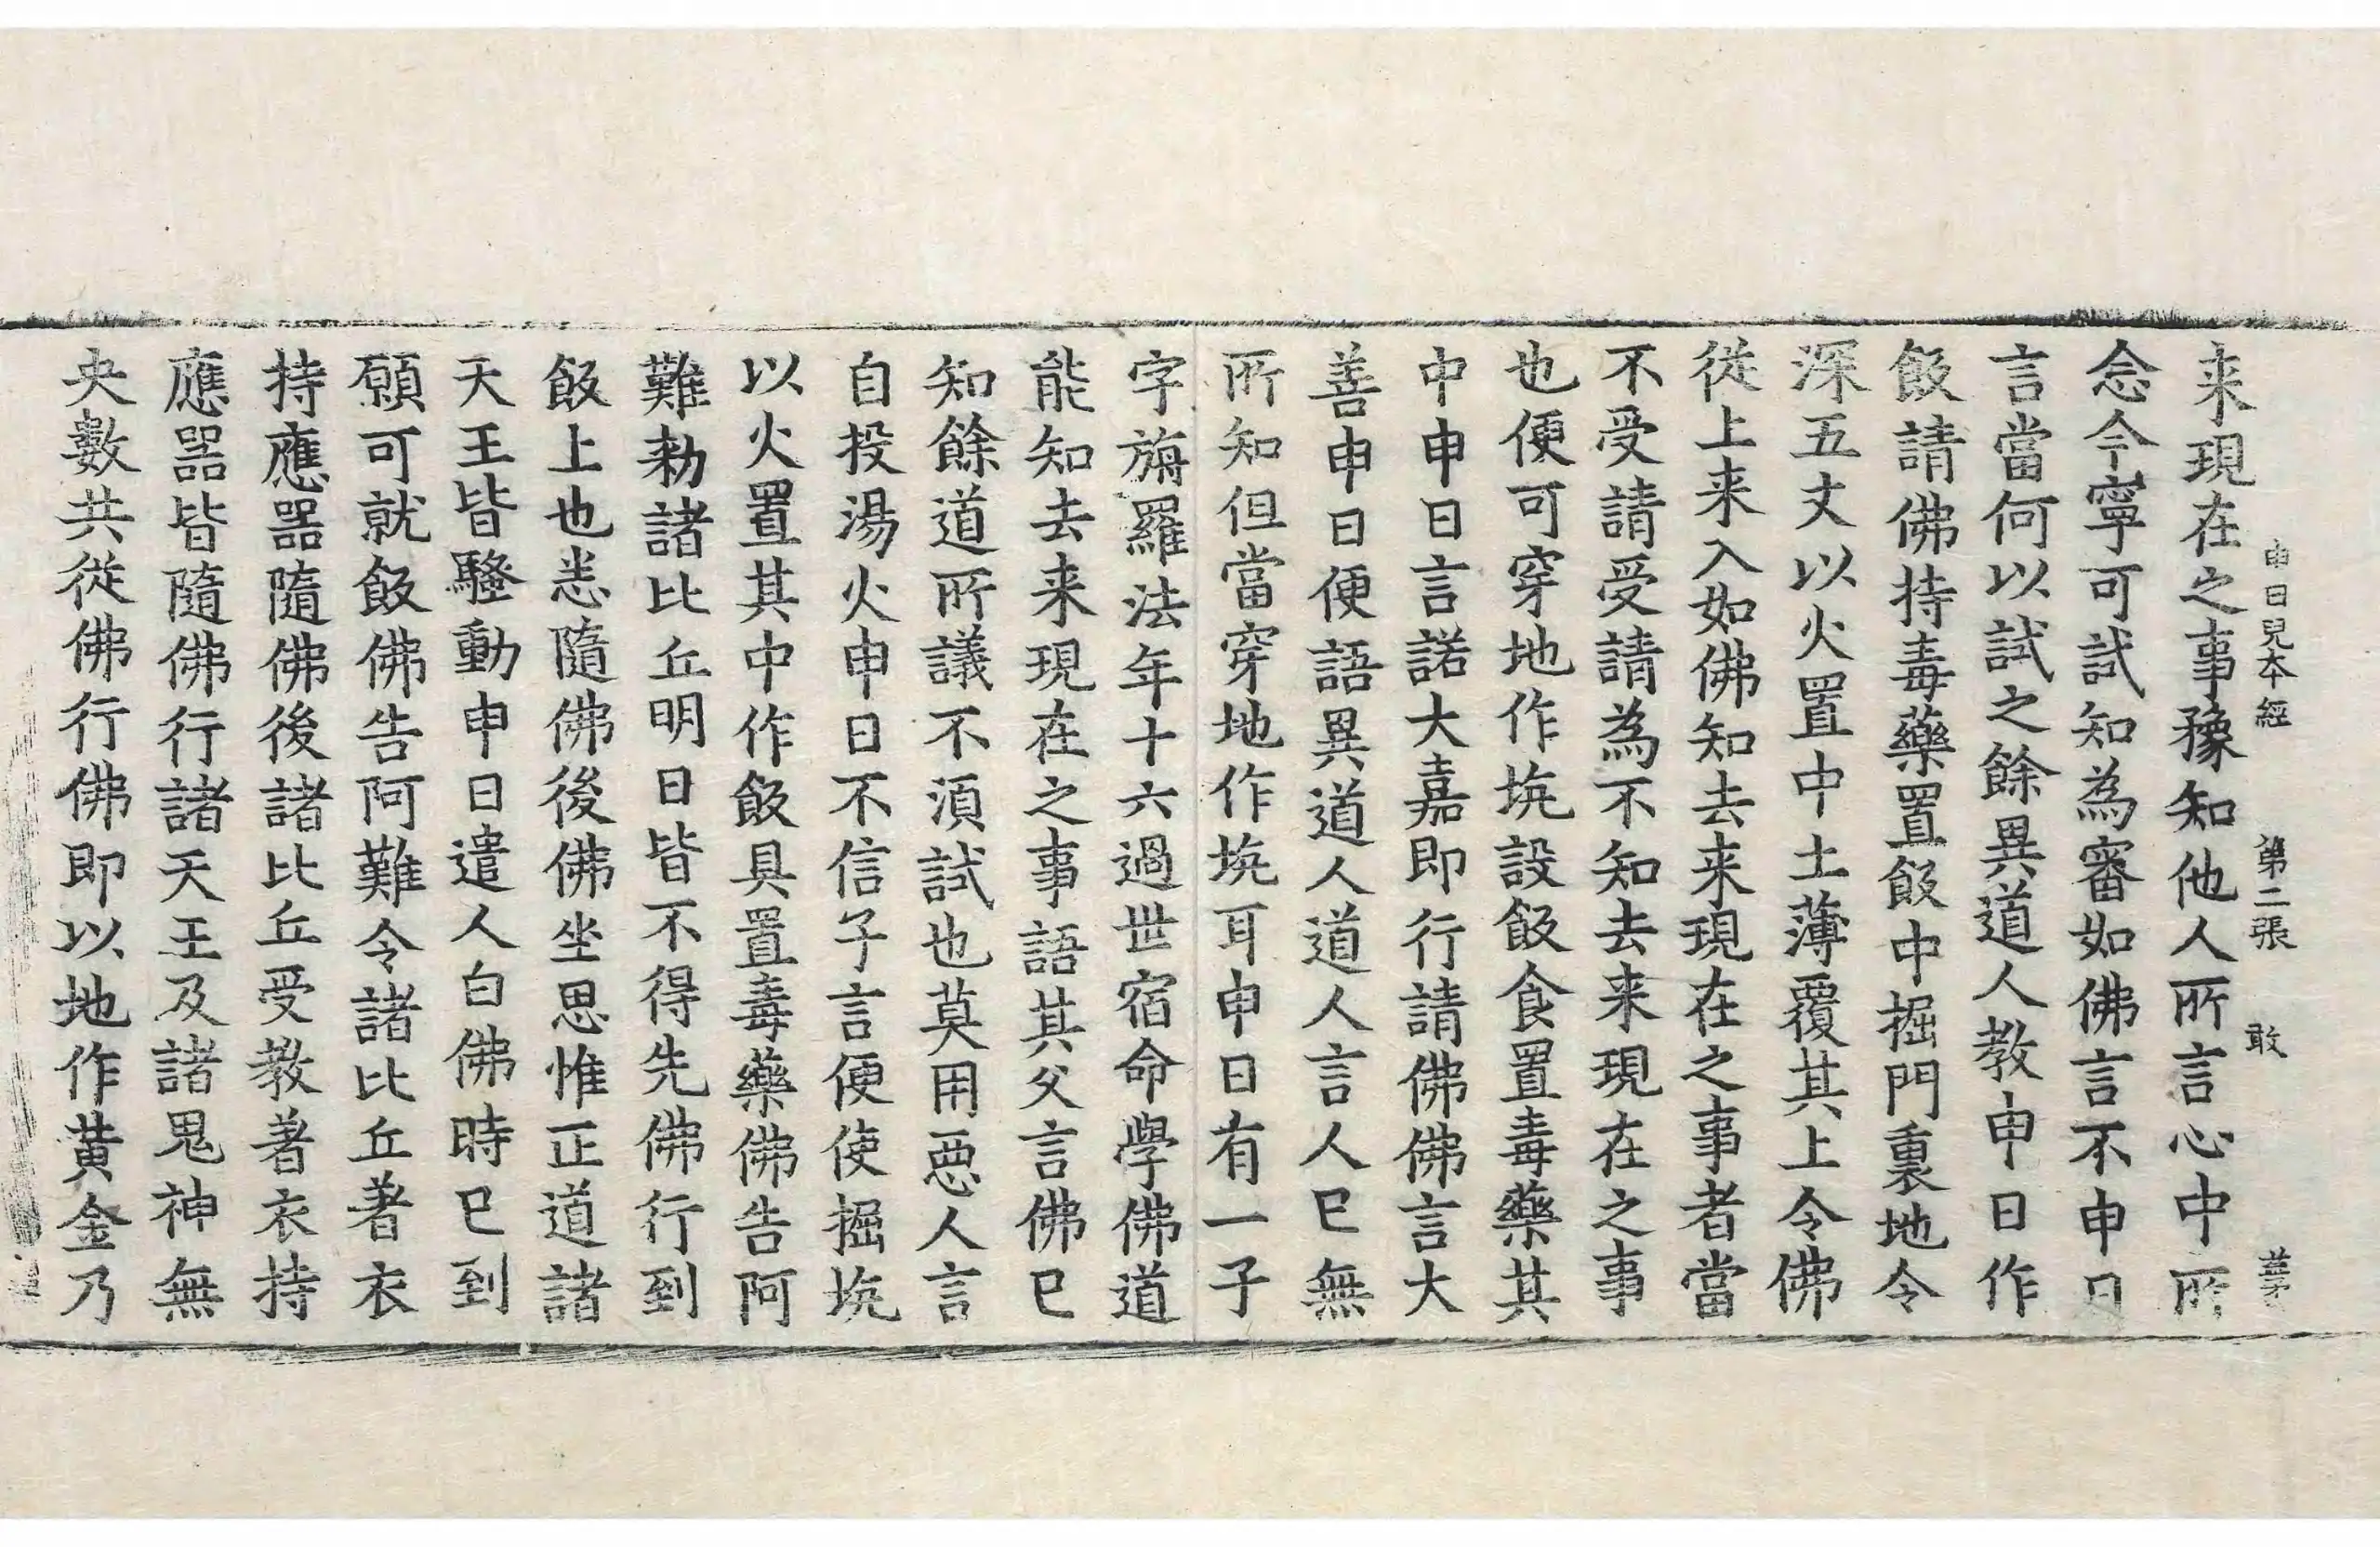 申日兒本經 第二張 敢
来現在之事豫知他人所言心中所
念今寧可試知為審如佛言不申日
言當何以試之餘異道人教申日作
飯請佛持毒藥置飯中掘門裏地令
深五丈以火置中土薄覆其上令佛
從上来入如佛知去来現在之事者當
不受請受請為不知去来現在之事
也便可穿地作坑設飯食置毒藥其
中申日言諾大嘉即行請佛佛言大
善申日便語異道人道人言人已無
所知但當穿地作坑耳申日有一子
字旃羅法年十六過世宿命學佛道
能知去来現在之事語其父言佛已
知餘道所議不湏試也莫用惡人言
自投湯火申日不信子言便使掘坑
以火置其中作飯具置毒藥佛告阿
難勑諸比丘明日皆不得先佛行到
飯上也悉隨佛後佛坐思惟正道諸
天王皆騷動申日遣人白佛時已到
願可就飯佛告阿難令諸比丘著衣
持應器隨佛後諸比丘受教著衣持
應器皆隨佛行諸天王及諸鬼神無
央數共從佛行佛即以地作黄金乃